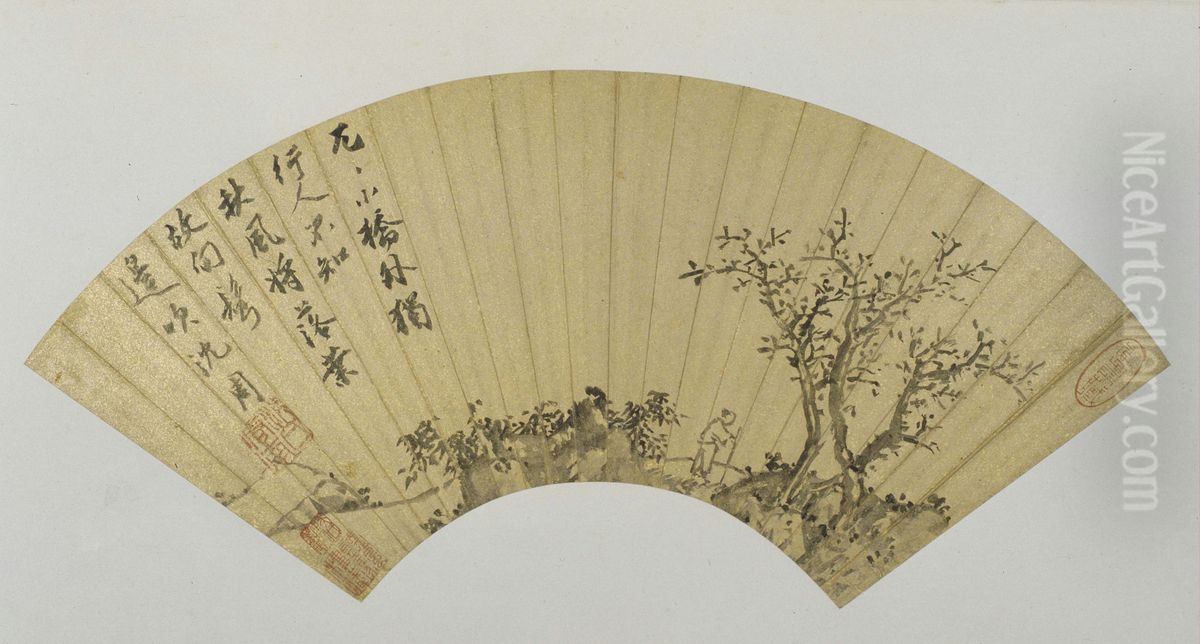 兀、小橋外獨
行人不知
秋風將落葉
故向鬢
邊吹沈周
NiceArtGallery.com